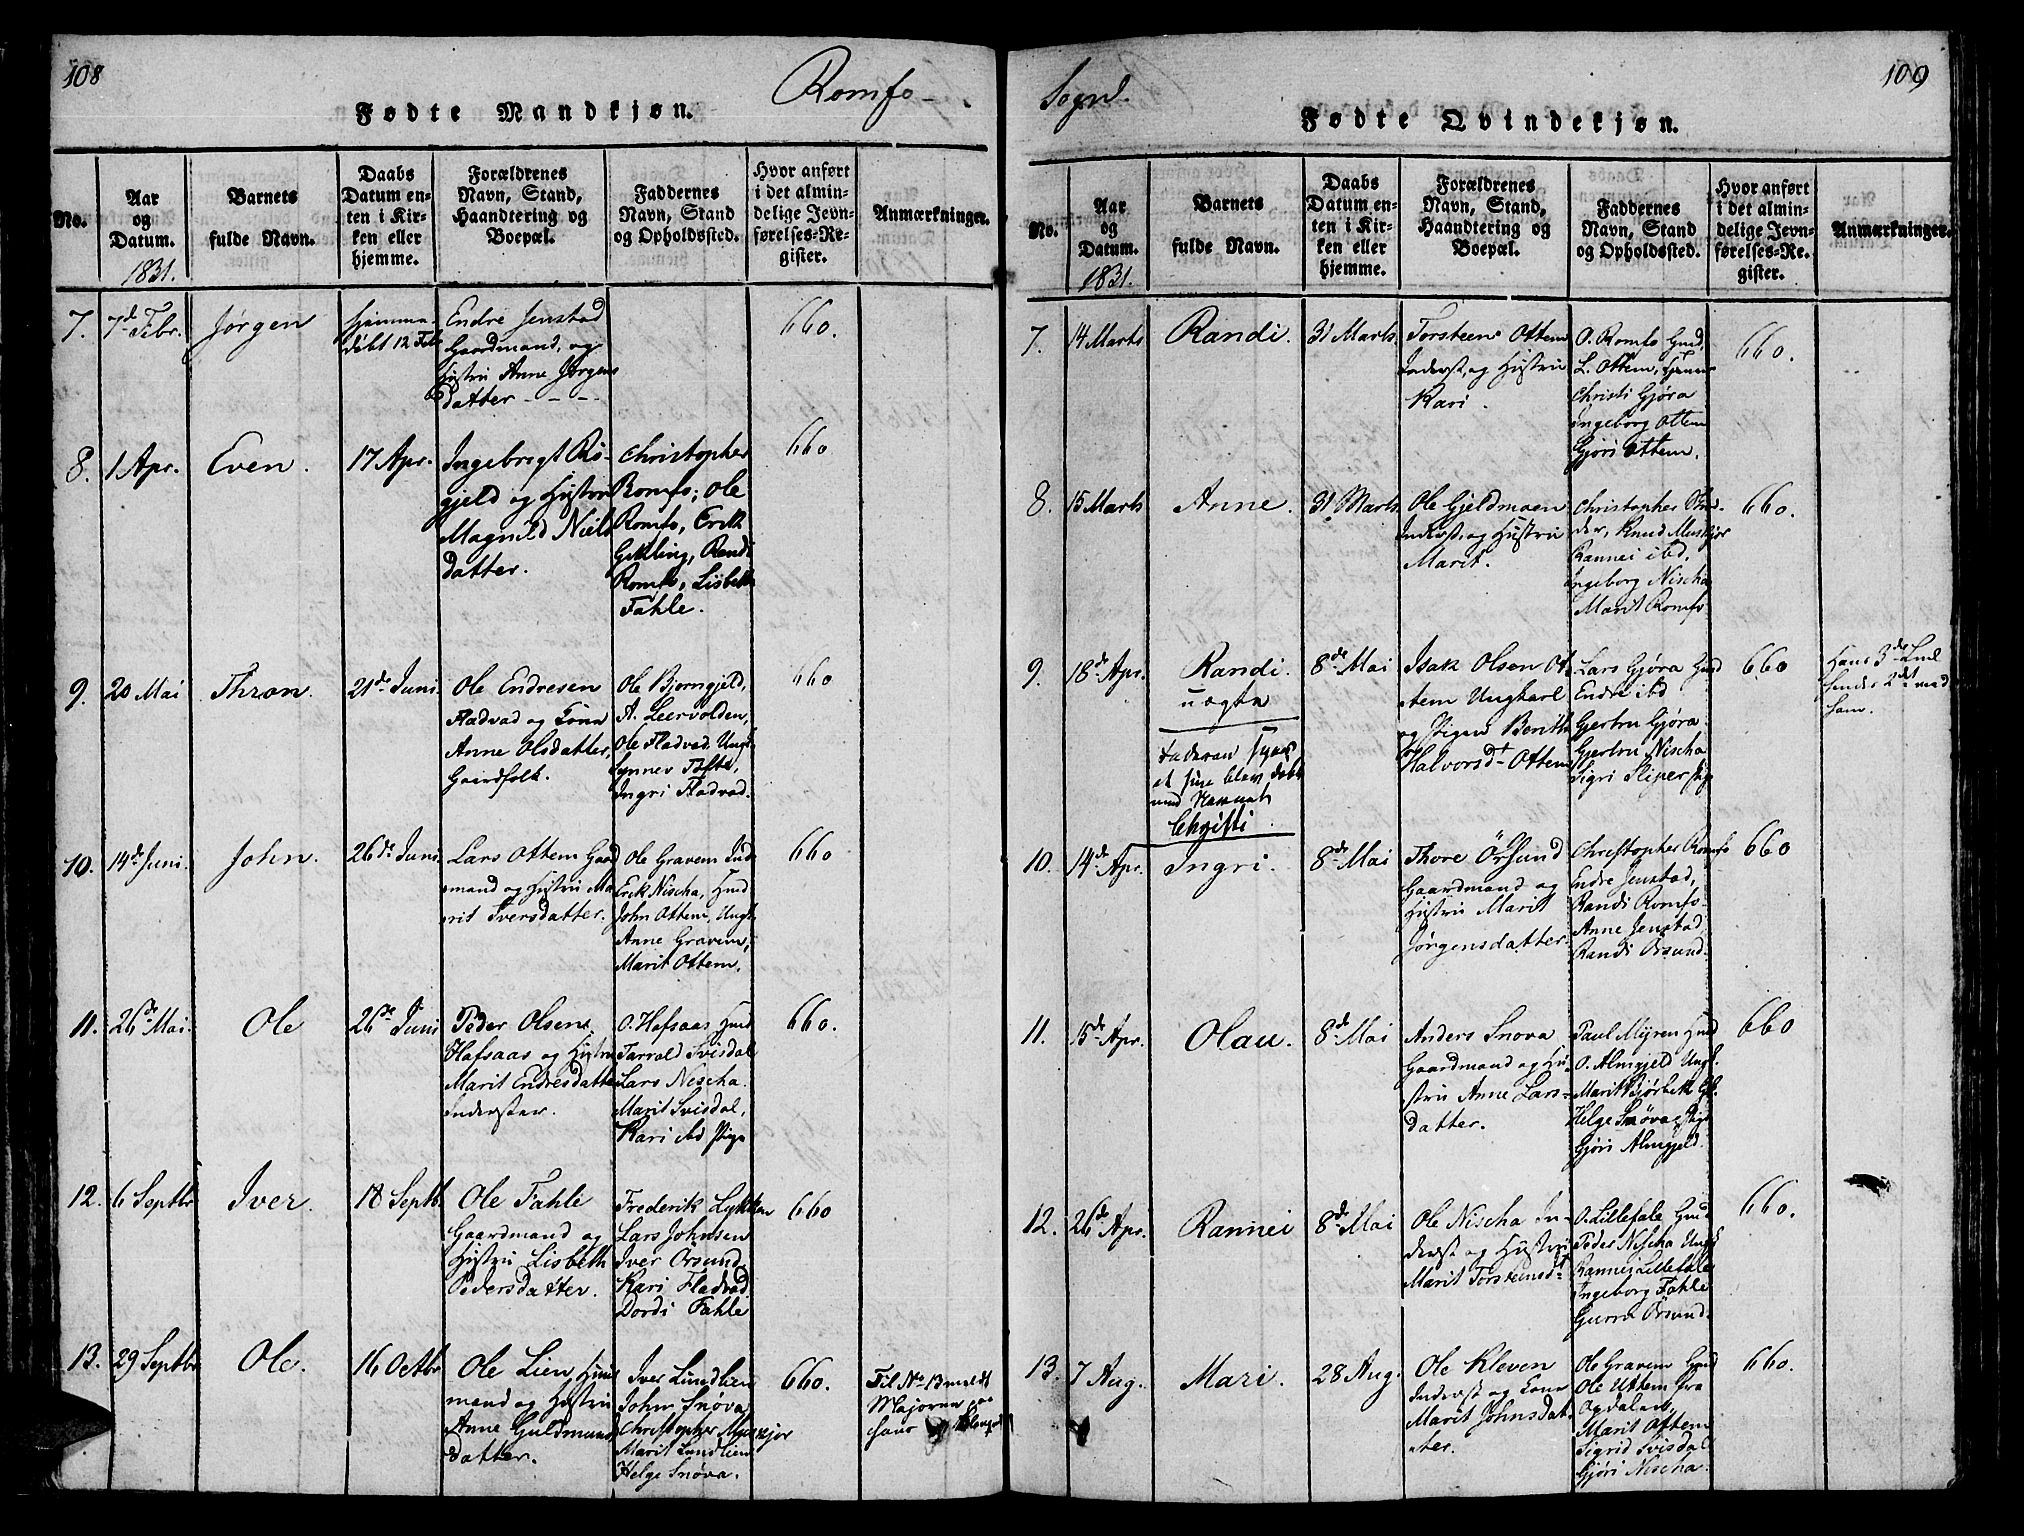 108
Romfo
Fødte Mandkjøn.
No.
Aar
og
Datum.
1831.
Barnets
fulde Navn.
Daabs
Datum en-
ten i Kir-
ken eller
hjemme.
Forældrenes
Navn, Stand,
Haandtering og
Boepæl.
Faddernes
Navn, Stand
og Opholdssted.
Hvor anført
i det almin-
delige Jevn-
førelses-Re-
gister.
Anmærkninger.
7.
7de Febr.
Jørgen
hjemme
døbt 12 Feb
Endre Jenstad
Gaardmand, og
Hustru Anne Jørgens
datter
660.
8.
1 Apr.
Even.
17 Apr.
Ingebrigt Rø-
gjeld og Hustru
Magnild Niels
datter.
Christopher
Romfo, Ole
Romfo, Erik
Gikling, Randi
Romfo, Lisbeth
Fahle.
660
9.
20 Mai
Thron.
21de Juni
Ole Endresen
Fladvad og Kona
Anne Olsdatter,
Gaardfolk.
Ole Bjørngjeld,
A. Leervolden,
Ole Fladvad Ungk
Synnev Tofte,
Ingri Fladvad.
660
10.
14de Juni.
John.
26de Juni
Lars Ottem Gaard
mand og Hustru Ma
rit Iversdatter.
Ole Gravem
Erik Nischa, Hmd
John Ottem, Ungk
Anne Gravem,
Marit Ottem.
660
11.
26de Mai.
Ole
26de Juni
Peder Olsen
Hafsaas og Hustru
Marit Endresdatter
Inderster.
O. Hafsaas Hmd
Tarrald Svisdal
Lars Nischa.
Marit Svisdal,
Kari ibd Pige
660.
12.
6 Septbr
Iver.
18 Septb.
Ole Fahle
Gaardmand og
Hustru Lisbeth
Pedersdatter.
Frederik Lykken
Lars Johnsen
Iver Örsund
Kari Fladvad
Dordi Fahle
660
13.
29 Septbr
Ole.
16 Octbr
Ole Lien Huus
mand og Hustru
Anne Guldmunds
datter.
Iver Lundlien
John Snøva,
Christopher Muskjør
Marit Lundlien
Helge Snøva.
660.
Til No 13 meldt
Majoren
109
Sogn.
Fødte Qvindekjøn.
No.
Aar
og
Datum.
1831.
Barnets
fulde Navn.
Daabs
Datum en-
ten i Kir-
ken eller
hjemme.
Forældrenes
Navn, Stand,
Haandtering og
Boepæl.
Faddernes
Navn, Stand
og Opholdssted.
Hvor anført
i det almin-
delige Jevn-
førelses-Re-
gister.
Anmærkninger.
7.
14 Marts
Randi.
31 Marts
Torsteen Ottem
Inderst, og Hustru
Kari.
O. Romfo Hmd,
L. Ottem,
Christi Gjøra
Ingeborg Ottem
Gjøri Ottem.
660.
8.
15 Marts
Anne.
31 Marts
Ole Gjeldmoen
Inderst, og Hustru
Marit.
Christopher
Knud Muskjør
Rannei ibd.
Ingeborg Nischa
Marit Romfo
660.
9.
18de Apr.
Randi.
uægte
8de Mai
Isak Olsen Ot
tem Ungkarl
og Pigen Berith
Halvorsdt Ottem
Lars Gjøra Hmd
Endre ibd
Gjertru Gjøra
Gjertru Nischa
Sigri Sliper Pig
660
Hans 3de
hendes 2det med
ham.
Christi.
10.
14de Apr.
Ingri.
8de Mai
Thore Örsund
Gaardmand og
Hustru Marit
Jørgensdatter.
Christopher Romfo
Endre Jenstad,
Randi Romfo
Anne Jenstad,
Randi Örsund.
660
11.
15de Apr.
Olau.
8de Mai
Anders Snøva
Gaardmand og Hu
stru Anne Lars-
datter.
Paul Myren Hmd
O. Almgjeld Ungk.
Marit Bjørbekk
Helge Snøva, Pig
Gjøri Almgjeld.
660
12.
26de Apr.
Rannei
8de Mai
Ole Nischa In-
derst og Hustru
Marit Torsteensdt
O. Lillefale Hmd
Peder Nischa Ungk
Rannei Lillefale
Ingeborg Fahle
Gurru Örsund.
660.
13.
7 Aug.
Mari.
28 Aug.
Ole Kleven
Inderst og Kone
Marit Johnsdat
ter.
Ole Gravem Hmd
Ole Uttem fra
Opdalen,
Marit Ottem
Sigrid Svisdal
Gjøri Nischa.
660.